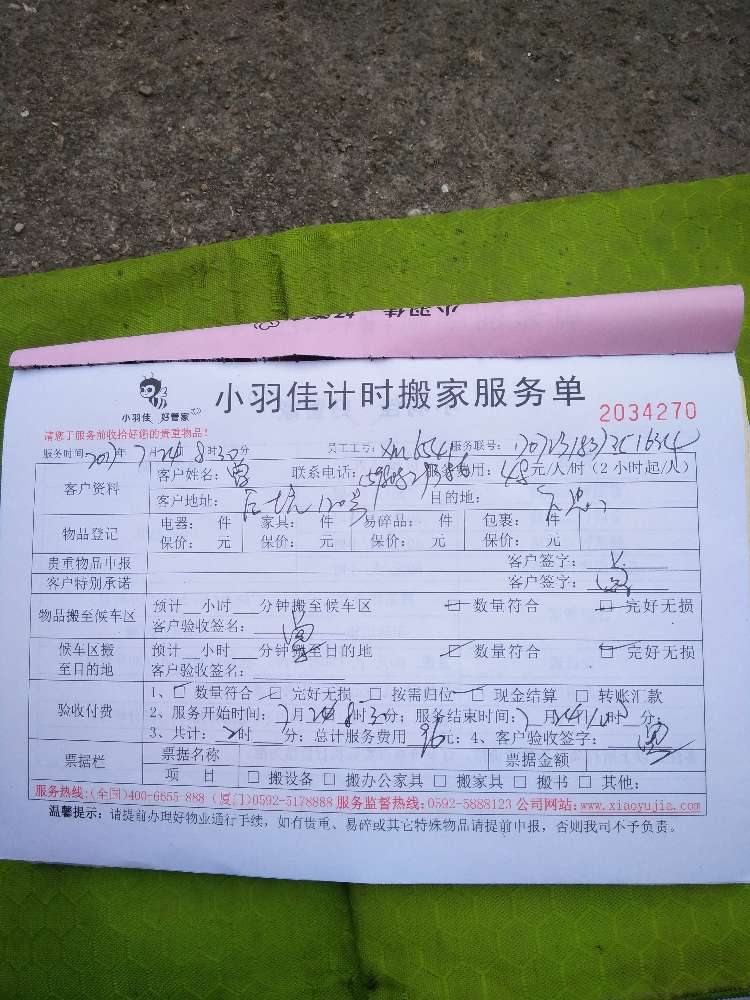 小羽佳 好管家
小羽佳计时搬家服务单
2034270
请您于服务前收拾好您的贵重物品！
服务时间: 年7月24日8时30分 员工工号: XM6541 服务联号:
客户资料
客户姓名: 曾 联系电话: 服务费用: 48元/人/时 (2小时起/人)
客户地址: 120号 目的地:
物品登记
电器: 件 家具: 件 易碎品: 件 包裹: 件
保价: 元 保价: 元 保价: 元 保价: 元
贵重物品申报 客户签字:
客户特别承诺 客户签字:
物品搬至候车区
预计__小时__分钟搬至候车区 数量符合 完好无损
客户验收签名: 曾
候车区搬至目的地
预计__小时__分钟搬至目的地 数量符合 完好无损
客户验收签名:
验收付费
1、 数量符合 完好无损 按需归位 现金结算 转账汇款
2、服务开始时间: 7月24日8时30分; 服务结束时间: 7月24日 时 分;
3、共计: 2时 分; 总计服务费用 96元; 4、客户验收签字: 曾
票据栏
票据名称 票据金额
项目 搬设备 搬办公家具 搬家具 搬书 其他:
服务热线:(全国)400-6655-888 (厦门)0592-5178888 服务监督热线:0592-5888123 公司网站:www.xiaoyujia.com
温馨提示: 请提前办理好物业通行手续, 如有贵重、易碎或其它特殊物品请提前申报, 否则我司不予负责。